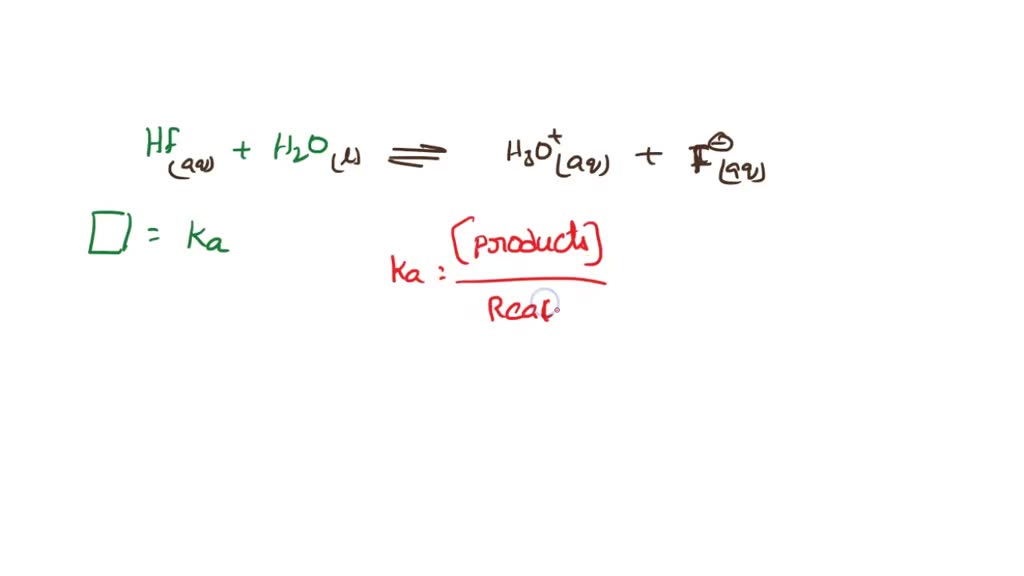 Hf(aq) + H2O(l) ⇌ H3O+(aq) + F⊖(aq)
□ = Ka
Ka = [products]
Reac